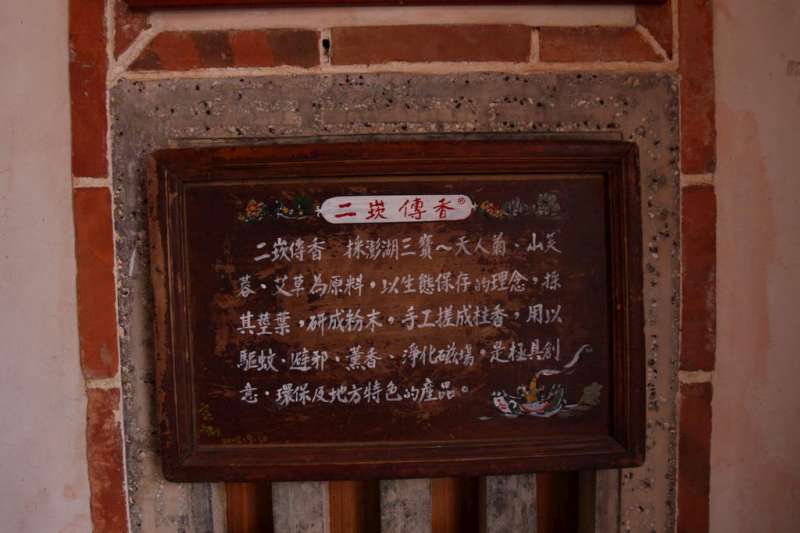 二崁傳香®
二崁傳香 採澎湖三寶～天人菊、山芙
蓉、艾草為原料，以生態保存的理念，採
其莖葉，研成粉末，手工搓成柱香，用以
驅蚊、避邪、薰香、淨化磁場，是極具創
意、環保及地方特色的產品。